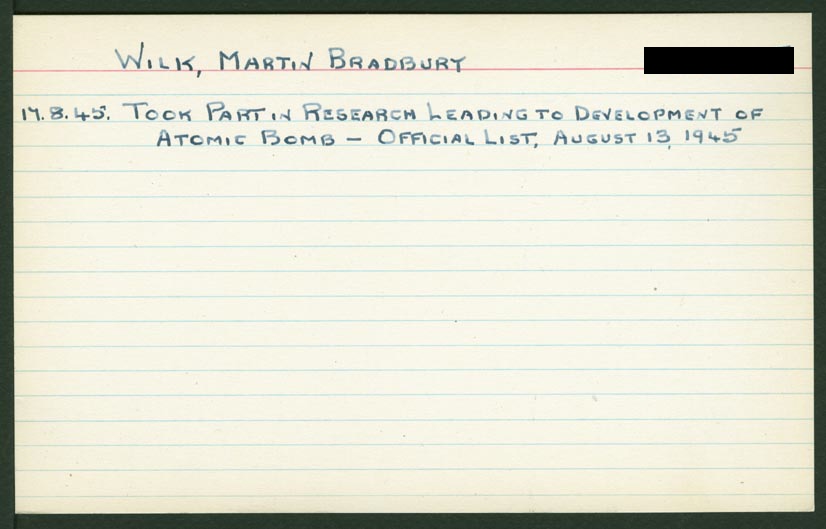 WILK, MARTIN BRADBURY
17.8.45. TOOK PART IN RESEARCH LEADING TO DEVELOPMENT OF
ATOMIC BOMB – OFFICIAL LIST, AUGUST 13, 1945